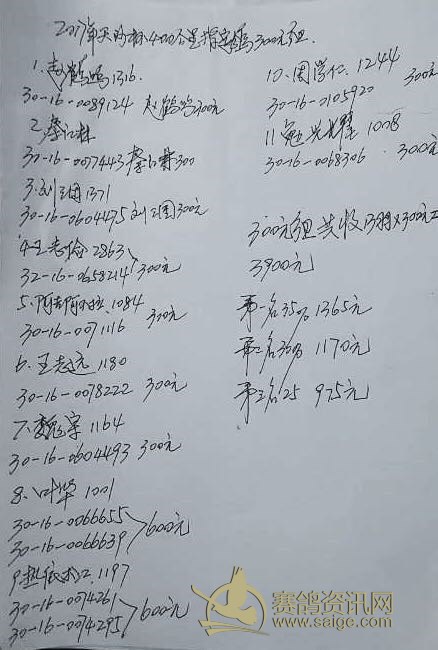 400公里指定鸽300元组
1. 赵鹤鸣1316.
30-16-0089124 赵鹤鸣300元
2.
30-16-0077443 300
3. 刘 1371
30-16-0604475 刘 300元
4. 王志 2863
32-16-0658214 300元
5. 阿 1084
30-16-0071116 300元
6. 王志远 1180
30-16-0078222 300元
7. 魏 1164
30-16-0604493 300元
8. 叶华 1001
30-16-0066655
30-16-0066639 600元
9. 热依木江. 1197
30-16-0074261
30-16-0074295 600元
10. 周学仁. 1244
30-16-0105920 300元
11. 1008
30-16-0068306 . 300元
300元组共收13羽x300元=
3900元
第一名35% 1365元
第二名30% 1170元
第三名25 975元
赛鸽资讯网
www.saige.com